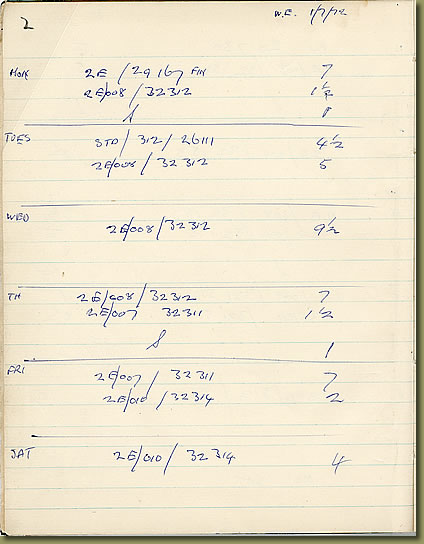 2 W.E. 1/7/72
MON 2E / 29167 FIN 7
2E/008 / 32312 1½
S 1
TUES STD / 312 / 26111 4½
2E/008 / 32312 5
WED 2E/008 / 32312 9½
TH 2E/008 / 32312 7
2E/007 32311 1½
S 1
FRI 2E/007 / 32311 7
2E/010 / 32314 2
SAT 2E/010 / 32314 4